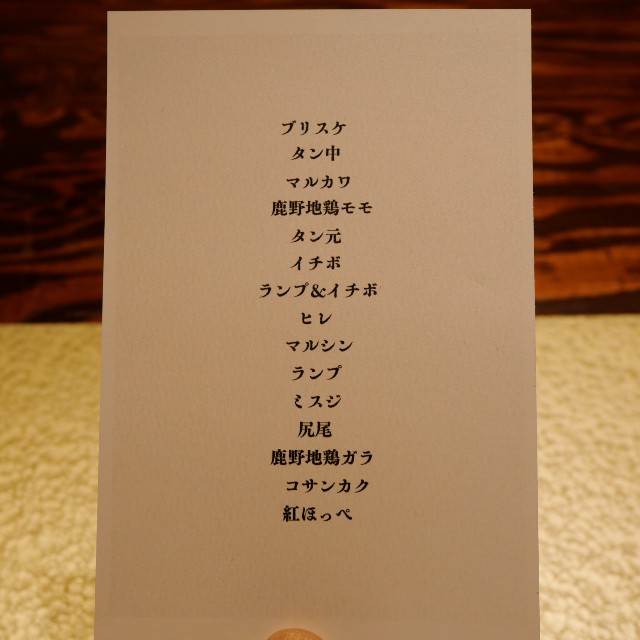 ブリスケ
タン中
マルカワ
鹿野地鶏モモ
タン元
イチボ
ランプ&イチボ
ヒレ
マルシン
ランプ
ミスジ
尻尾
鹿野地鶏ガラ
コサンカク
紅ほっぺ